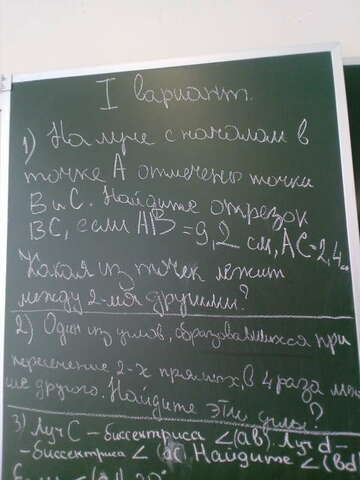 I вариант.
1) На луче с началом в
точке А отмечены точки
В и С. Найдите отрезок
ВС, если АВ = 9,2 см, АС = 2,4 см
Какая из точек лежит
между 2-мя другими?
2) Один из углов, образовавшихся при
пересечение 2-х прямых, в 4 раза мень
ше другого. Найдите эти углы?
3) Луч С - биссектриса ∠(ab). Луч d -
- биссектриса ∠(ac). Найдите ∠(bd)